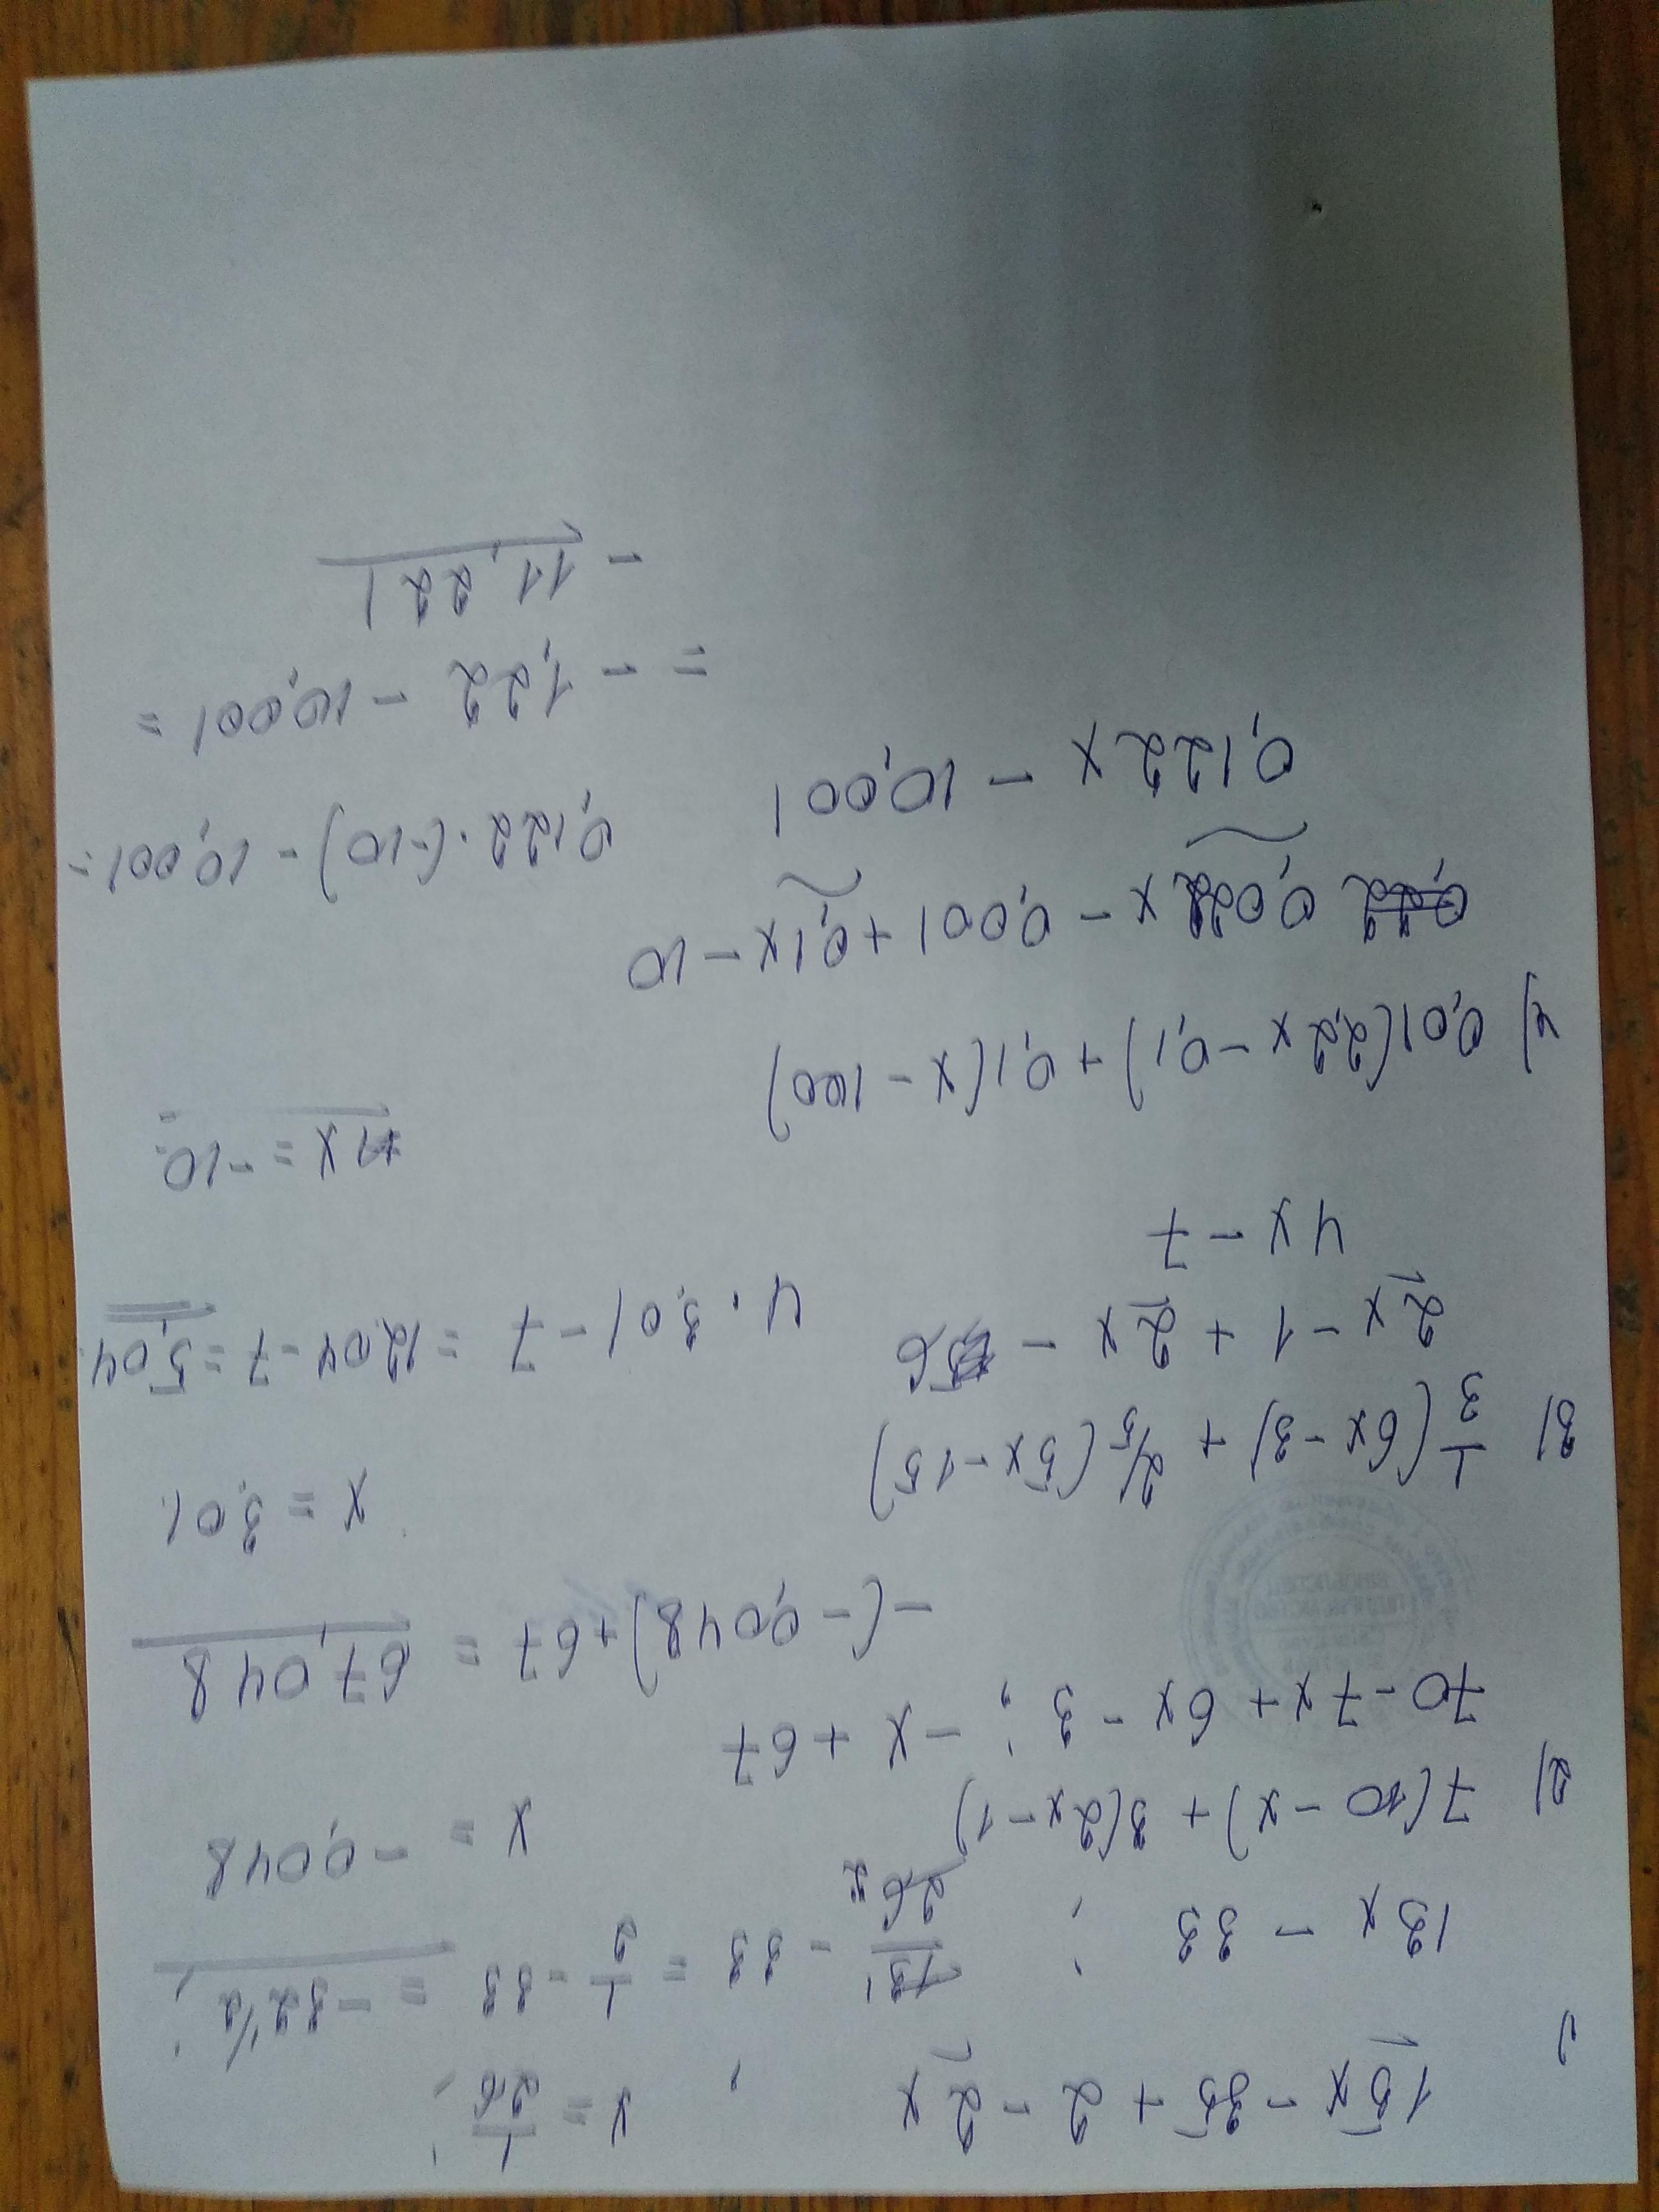 1) 15x - 35 + 2 - 2x , x = 1/26 ;
13x - 33 ; 13/26 - 33 = 1/2 - 33 = -32 1/2 ;
2) 7(10 - x) + 3(2x - 1) x = -0,048
70 - 7x + 6x - 3 ; - x + 67
- (- 0,048) + 67 = 67,048
3) 1/3 (6x - 3) + 2/5 (5x - 15) x = 3,01.
2x - 1 + 2x - 6 4 · 3,01 - 7 = 12,04 - 7 = 5,04.
4x - 7
x = -10
4) 0,01(2,2x - 0,1) + 0,1(x - 100)
0,022x - 0,001 + 0,1x - 10
0,122x - 10,001 0,122 · (-10) - 10,001 =
= - 1,22 - 10,001 =
- 11,221